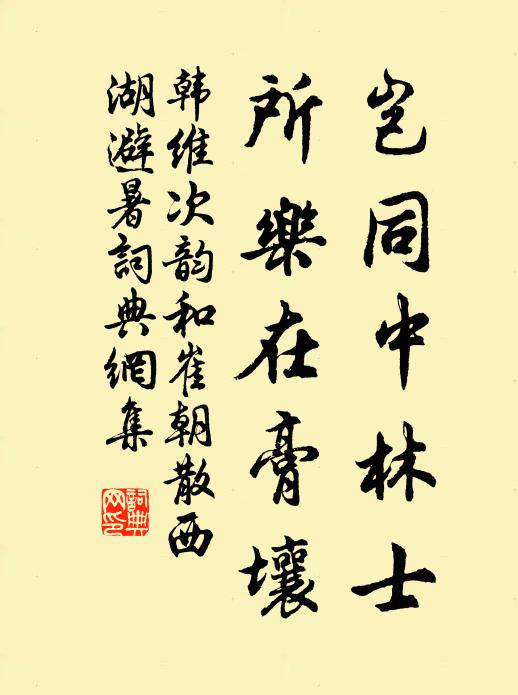 岂同中林士
所樂在膏壤
韩维次韵和崔朝散西
湖避暑詞典網集
詞典
网印